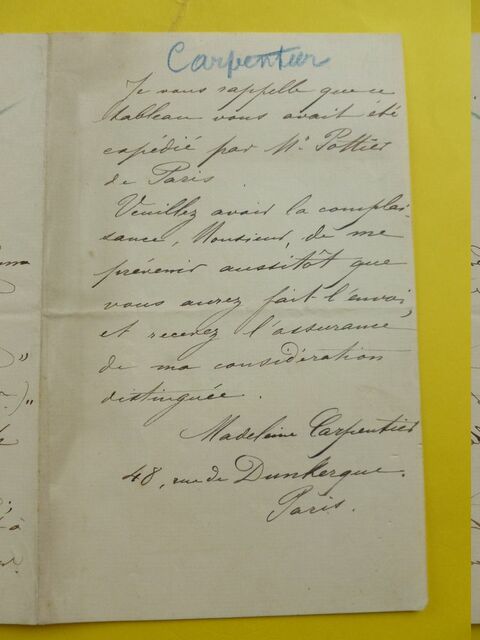 Carpentier
Je vous rappelle que ce
tableau vous avait été
expédié par Mr Pottier
de Paris.
Veuillez avoir la complai-
sance, Monsieur, de me
prévenir aussitôt que
vous aurez fait l'envoi,
et recevez l'assurance
de ma considération
distinguée.
Madeleine Carpentier
48, rue de Dunkerque.
Paris.